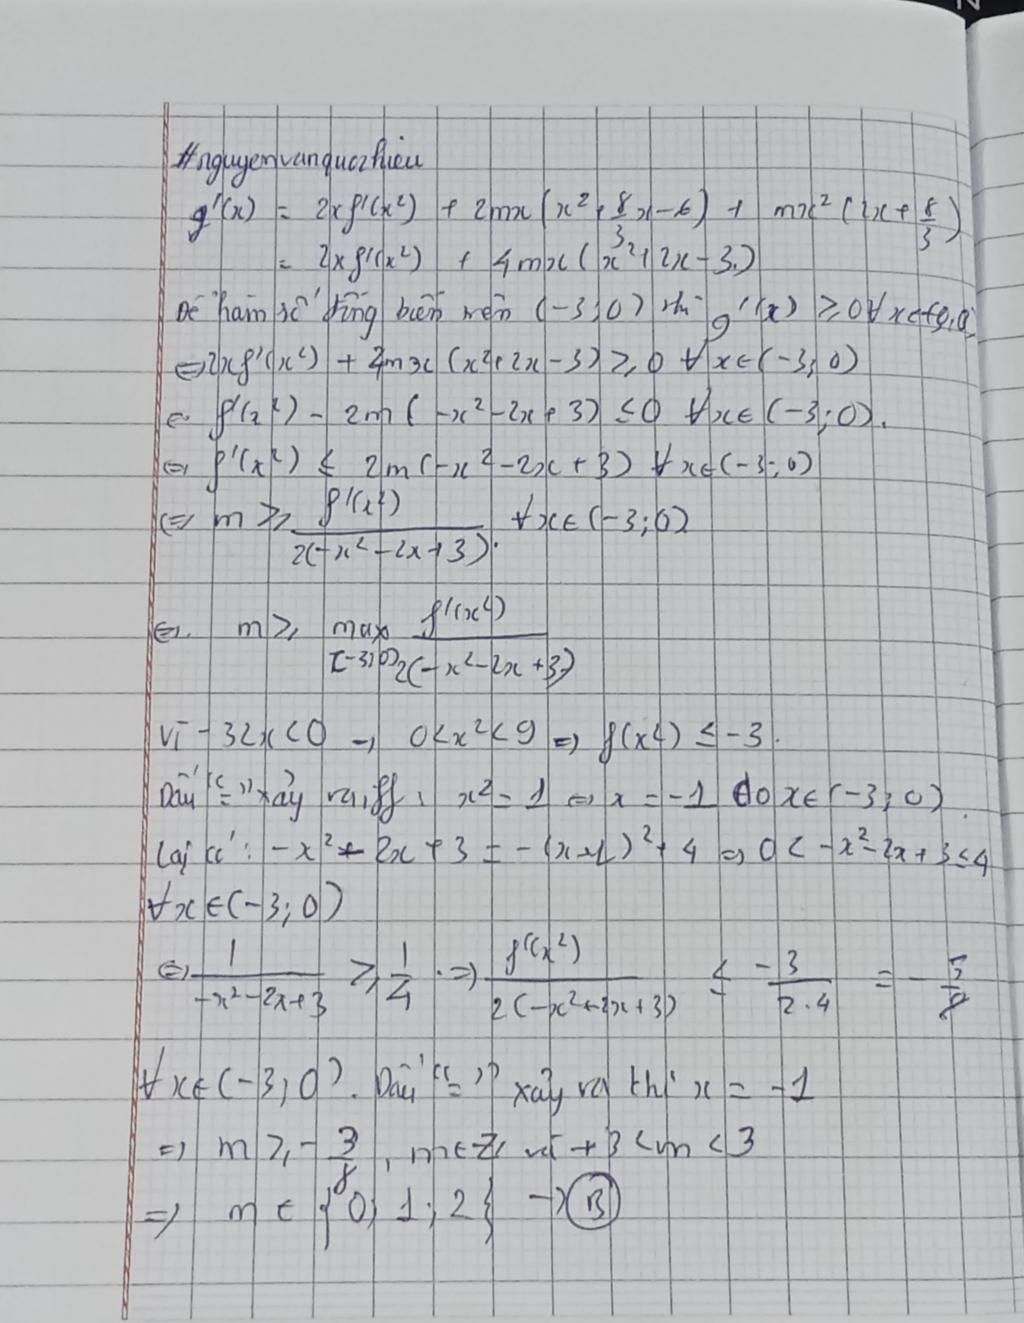 #nguyenvanquochieu
g'(x) = 2xf'(x²) + 2mx(x² + 8/3 x - 6) + mx²(2x + 8/3)
= 2xf'(x²) + 4mx(x² + 2x - 3)
Để hàm số đồng biến trên (-3;0) thì g'(x) ≥ 0 ∀x∈(-3;0)
⇔ 2xf'(x²) + 4mx(x²+2x-3) ≥ 0 ∀x∈(-3;0)
⇔ f'(x²) - 2m(-x²-2x+3) ≤ 0 ∀x∈(-3;0).
⇔ f'(x²) ≤ 2m(-x²-2x+3) ∀x∈(-3;0)
⇔ m ≥ f'(x²)/2(-x²-2x+3). ∀x∈(-3;0)
⇔ m ≥ max [-3;0] f'(x²)/2(-x²-2x+3)
Vì -3<x<0 → 0<x²<9 ⇒ f'(x²) ≤ -3.
Dấu "=" xảy ra iff: x² = 1 ⇔ x = -1 do x∈(-3;0).
Lại có: -x²-2x+3 = -(x+1)²+4 ⇒ 0 < -x²-2x+3 ≤ 4
∀x∈(-3;0)
⇔ 1/-x²-2x+3 ≥ 1/4 . ⇒ f'(x²)/2(-x²+2x+3) ≤ -3/2.4 = -3/8
∀x∈(-3;0). Dấu "=" xảy ra thì x = -1
⇒ m ≥ -3/8, m∈Z và +3<m<3
⇒ m ∈ {0; 1; 2} → B